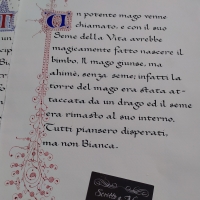 Un potente mago venne
chiamato, e con il suo
Seme della Vita avrebbe
magicamente fatto nascere il
bimbo. Il mago giunse, ma
ahimé, senza seme; infatti la
torre del mago era stata at-
taccata da un drago ed il seme
era rimasto al suo interno.
Tutti piansero disperati,
ma non Bianca.